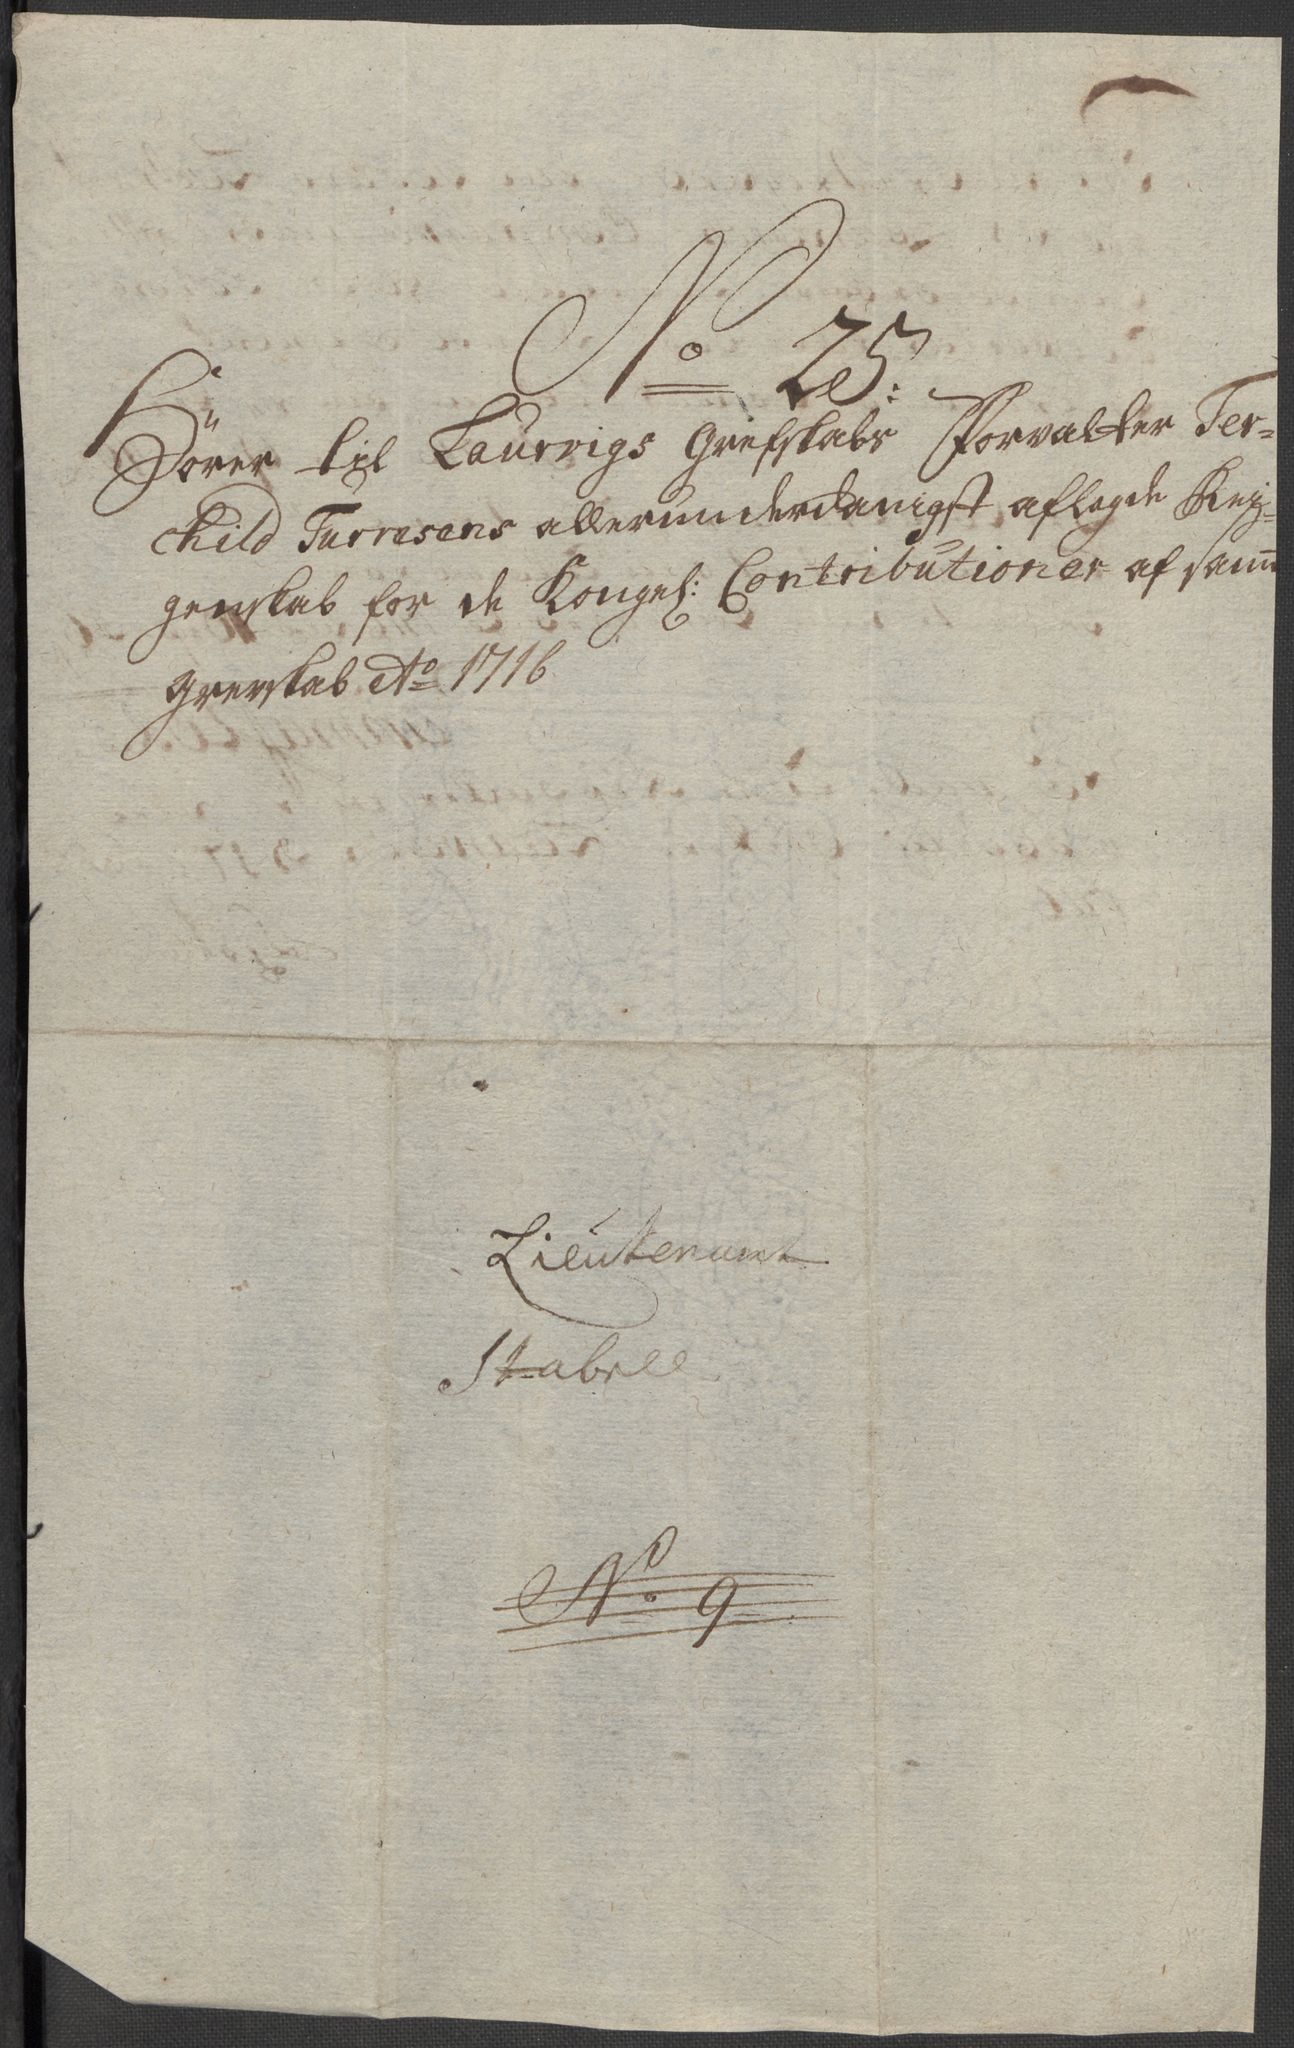 No 25:
Hörer til Laurvigs Grefskabs Forvalter Ter=
child Turresens allerunderdanigst aflagde Reg=
genskab for de Kongel: Contributioner af sam̄
Grevskab Ao 1716
Lieutenant
Stabell
No 9